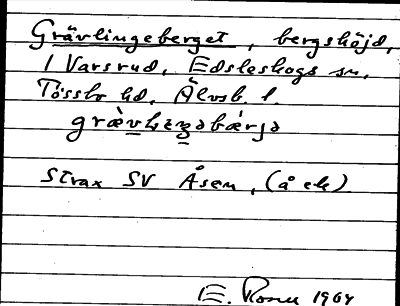 Grävlingeberget, bergshöjd,
1 Varsrud, Edsleskogs sn,
Tössbo hd, Älvsb. l.
Strax SV Åsen, (å ek)
E. Rosu 1964